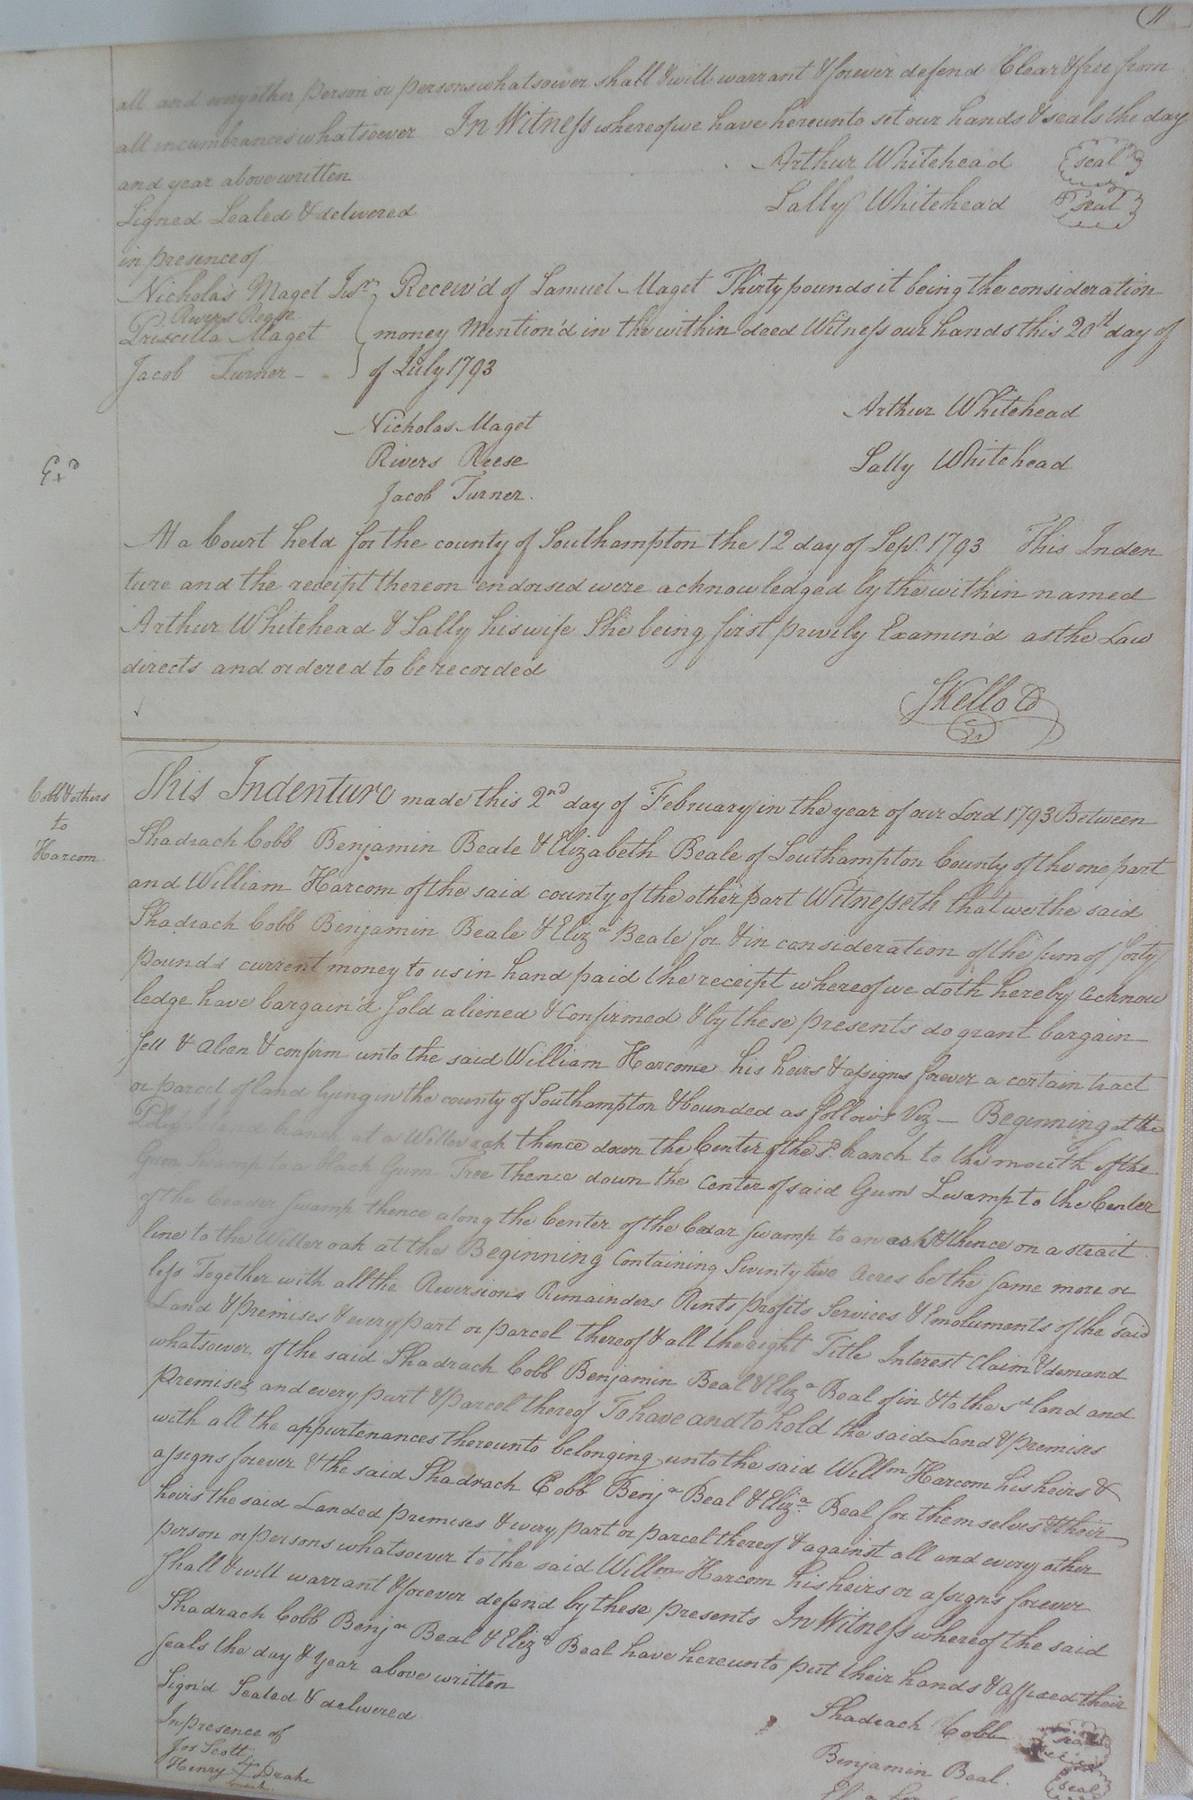 11
all and any other person or persons whatsoever shall & will warrant & forever defend Clear & free from
all incumbrances whatsoever In Witness whereof we have hereunto set our hands & seals the day
and year above written
Arthur Whitehead seal
Signed Sealed & delivered
Sally Whitehead seal
in presence of
Nicholas Maget
Rivers Reese
Priscilla Maget
Jacob Turner
Receiv'd of Samuel Maget Thirty pounds it being the consideration
money Mention'd in the within deed Witness our hands this 20th day of
of July 1793
Nicholas Maget
Rivers Reese
Jacob Turner.
Arthur Whitehead
Sally Whitehead
Exd
At a Court held for the county of Southampton the 12 day of Sept. 1793 This Inden
ture and the receipt thereon endorsed were acknowledged by the within named
Arthur Whitehead & Sally his wife She being first privily Examin'd as the Law
directs and ordered to be recorded
SKello Cl
Cobb & others
to
Harcom
This Indenture made this 2nd day of February in the year of our Lord 1793 Between
Shadrach Cobb Benjamin Beale & Elizabeth Beale of Southampton County of the one part
and William Harcom of the said county of the other part Witnesseth that we the said
Shadrach Cobb Benjamin Beale & Eliza Beale for & in consideration of the sum of forty
pounds current money to us in hand paid the receipt whereof we doth hereby acknow
ledge have bargain'd sold aliened & Confirmed & by these presents do grant bargain
sell & alien & confirm unto the said William Harcome his heirs & assigns forever a certain tract
or parcel of land lying in the county of Southampton & bounded as follows Viz — Beginning at the
branch at a Willer oak thence down the Center of the sd. branch to the mouth of the
Gum Swamp to a Black Gum Tree thence down the Center of said Gum Swamp to the Center
of the Beaver Swamp thence along the Center of the Swamp to an ash thence on a strait
line to the Willer oak at the Beginning Containing Seventy two Acres be the same more or
less Together with all the Reversions Remainders Rents profits Services & Emoluments of the said
Land & premises & every part or parcel thereof & all the right Title Interest Claim & demand
whatsoever of the said Shadrach Cobb Benjamin Beal & Eliza Beal of in & to the sd land and
premises and every part & parcel thereof To have and to hold the said Land & premises
with all the appurtenances thereunto belonging unto the said Willm Harcom his heirs &
assigns forever & the said Shadrach Cobb Benja Beal & Eliza Beal for themselves & their
heirs the said Landed premises & every part or parcel thereof & against all and every other
person or persons whatsoever to the said Willm Harcom his heirs or assigns forever
shall & will warrant & forever defend by these presents In Witness whereof the said
Shadrach Cobb Benja Beal & Eliza Beal have hereunto put their hands & affixed their
seals the day & year above written
Sign'd Sealed & delivered
In presence of
Jos Scott
Henry Drake
Shadrach Cobb seal
Benjamin Beal. seal